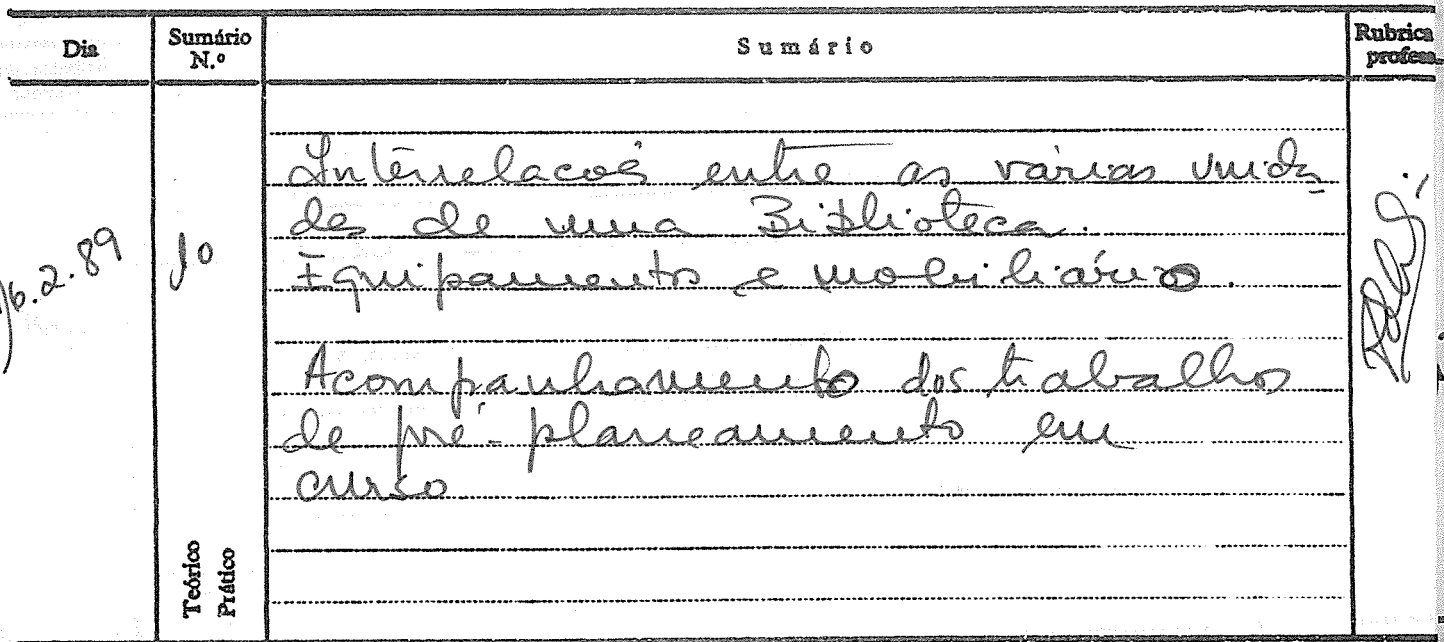 Dia Sumário N.º Sumário Rubrica profess
16.2.89 10
Interrelacoẽs entre as várias unida
des de uma Biblioteca.
Equipamento e mobiliário.
Acompanhamento dos trabalhos
de pré-planeamento em
curso
Teórico
Prático